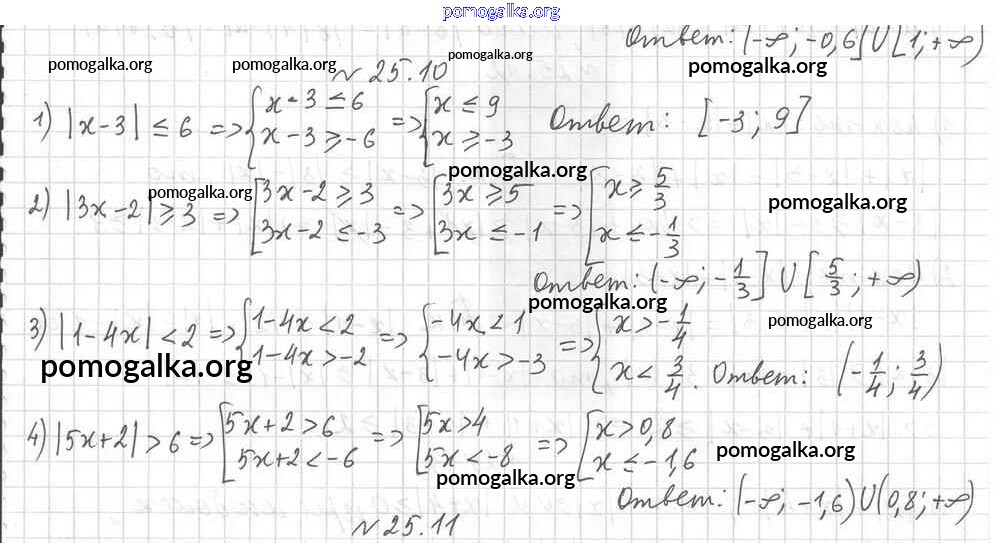 pomogalka.org
Ответ: (-∞; -0,6] U [1; +∞)
pomogalka.org pomogalka.org pomogalka.org
№ 25.10
1) |x-3| ≤ 6 => { x-3 ≤ 6 x-3 ≥ -6 => { x ≤ 9 x ≥ -3 Ответ: [-3; 9]
pomogalka.org
pomogalka.org pomogalka.org
2) |3x-2| ≥ 3 => [ 3x-2 ≥ 3 3x-2 ≤ -3 => [ 3x ≥ 5 3x ≤ -1 => [ x ≥ 5/3 x ≤ -1/3
Ответ: (-∞; -1/3] U [5/3; +∞)
pomogalka.org
pomogalka.org
3) |1-4x| < 2 => { 1-4x < 2 1-4x > -2 => { -4x < 1 -4x > -3 => { x > -1/4 x < 3/4. Ответ: (-1/4; 3/4)
pomogalka.org
4) |5x+2| > 6 => [ 5x+2 > 6 5x+2 < -6 => [ 5x > 4 5x < -8 => [ x > 0,8 x ≤ -1,6
pomogalka.org
pomogalka.org
Ответ: (-∞; -1,6) U (0,8; +∞)
№ 25.11